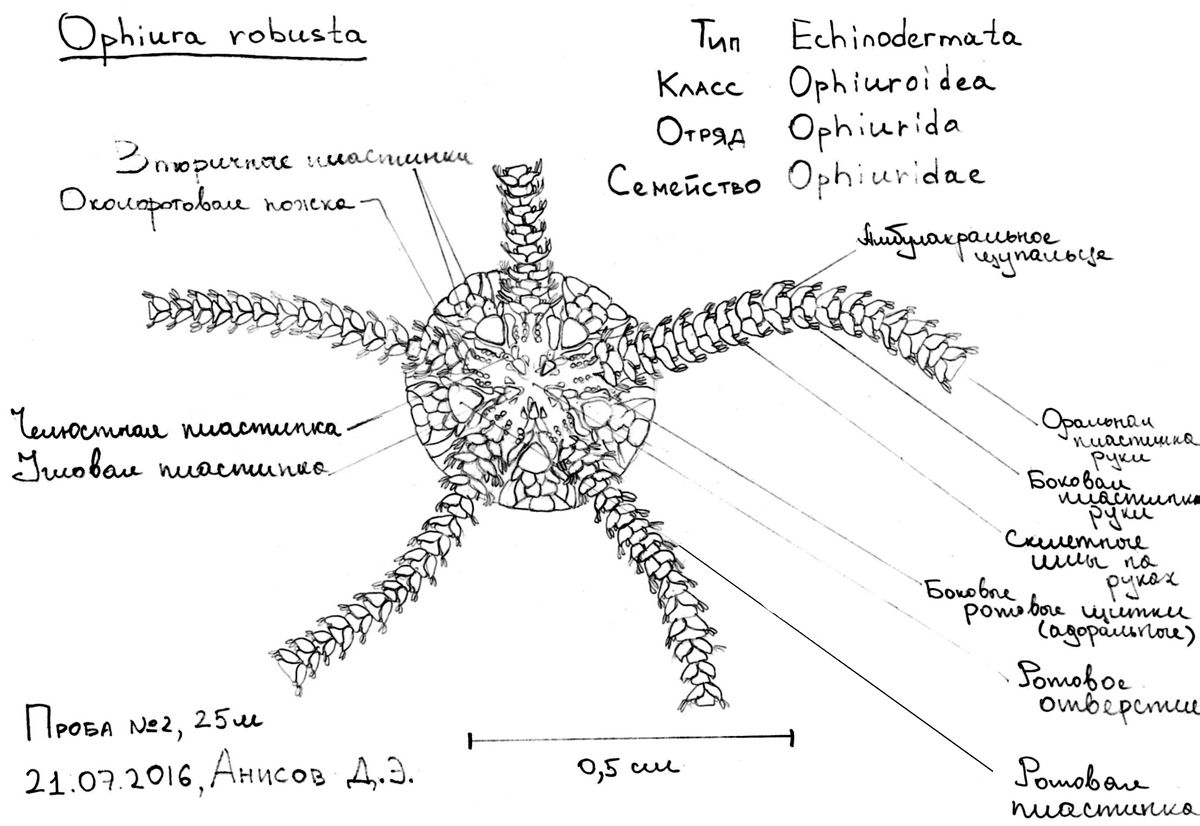 Ophiura robusta
Тип Echinodermata
Класс Ophiuroidea
Отряд Ophiurida
Семейство Ophiuridae
Вторичные пластинки
Околоротовая ножка
Амбулакральное
щупальце
Челюстная пластинка
Угловая пластинка
Оральная
пластинка
руки
Боковая
пластинка
руки
Скелетные
иглы на
руках
Боковые
ротовые щитки
(адоральные)
Ротовое
отверстие
Ротовая
пластинка
Проба №2, 25м
21.07.2016, Анисов Д.Э.
0,5 см